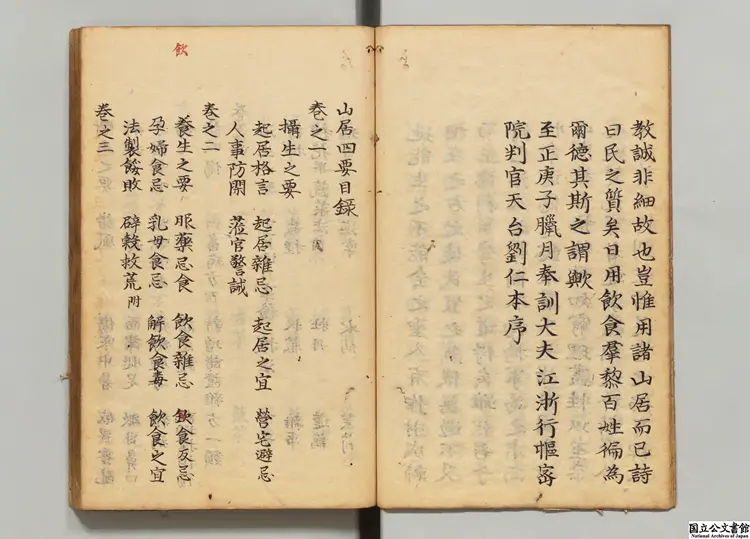 教誡非細故也豈惟用諸山居而已詩
曰民之質矣日用飲食羣黎百姓徧為
爾德其斯之謂歟
至正庚子臘月奉訓大夫江浙行樞密
院判官天台劉仁本序
飲
山居四要目録
卷之一
攝生之要
起居格言 起居雜忌 起居之宜 營宅避忌
人事防閑 蒞官警誡
卷之二
養生之要 服藥忌食 飲食雜忌 飲食反忌
孕婦食忌 乳母食忌 解飲食毒 飲食之宜
法製餒敗 辟穀救荒附
卷之三
国立公文書館
National Archives of Japan